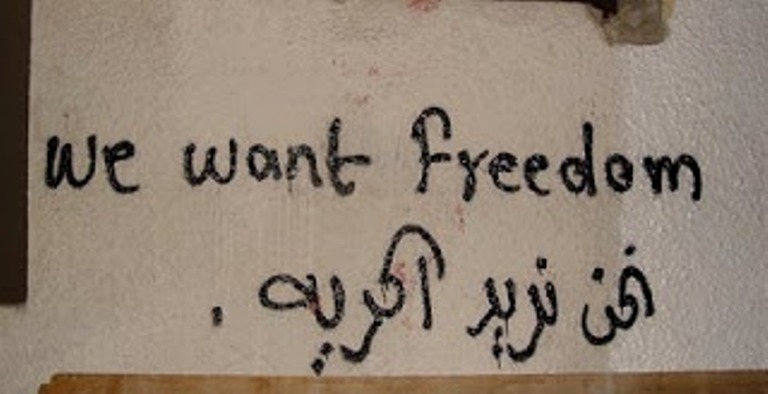 we want freedom
نحن نريد الحريه .